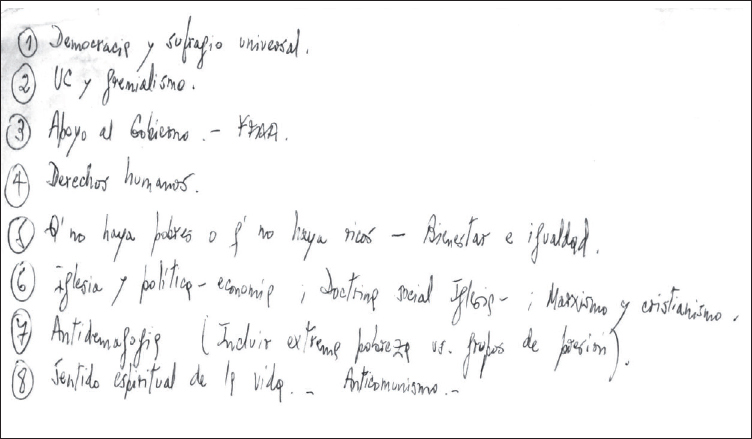 ① Democracia y sufragio universal.
② UC y gremialismo.
③ Apoyo al Gobierno. - FFAA.
④ Derechos humanos.
⑤ Q' no haya pobres o q' no haya ricos - Bienestar e igualdad.
⑥ Iglesia y política - economía ; Doctrina social Iglesia - ; Marxismo y cristianismo.
⑦ Antidemagogia (Incluir extrema pobreza vs. grupos de presión).
⑧ Sentido espiritual de la vida. - Anticomunismo. -